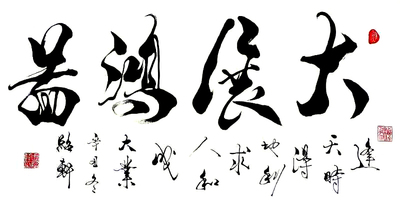 大展鴻圖
逢天時得地利求人和成大業
辛丑冬
軒